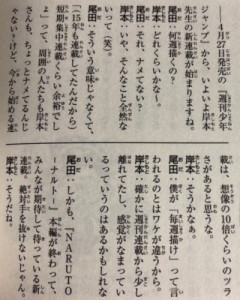 ――4月27日発売の『週刊少年
ジャンプ』から、いよいよ岸本
先生の新連載が始まりますね。
尾田：何週描くの？
岸本：どれくらいかな～。
尾田：それ、ナメてない？
岸本：いや、そんなこと全然な
いって（笑）。
尾田：そういう意味じゃなくて、
（15年も連載してたんだから）
短期集中連載くらい余裕でし
ょって、周囲の人たちも岸本
さんも、ちょっとナメてるんじ
ゃない？けど、今から始める連
載は、想像の10倍くらいのツラ
さがあると思うな。
岸本：そうかなぁ。
尾田：僕が「毎週描け」って言
われるのとはワケが違うから。
岸本：確かに週刊連載から少し
離れてたし、感覚がなまってい
るっていうのはあるかもしれな
い。
尾田：しかも、『NARUTO
―ナルト―』本編が終わって、
みんなが期待して待っている新
連載。絶対手を抜けないじゃん。
岸本：そうだね。